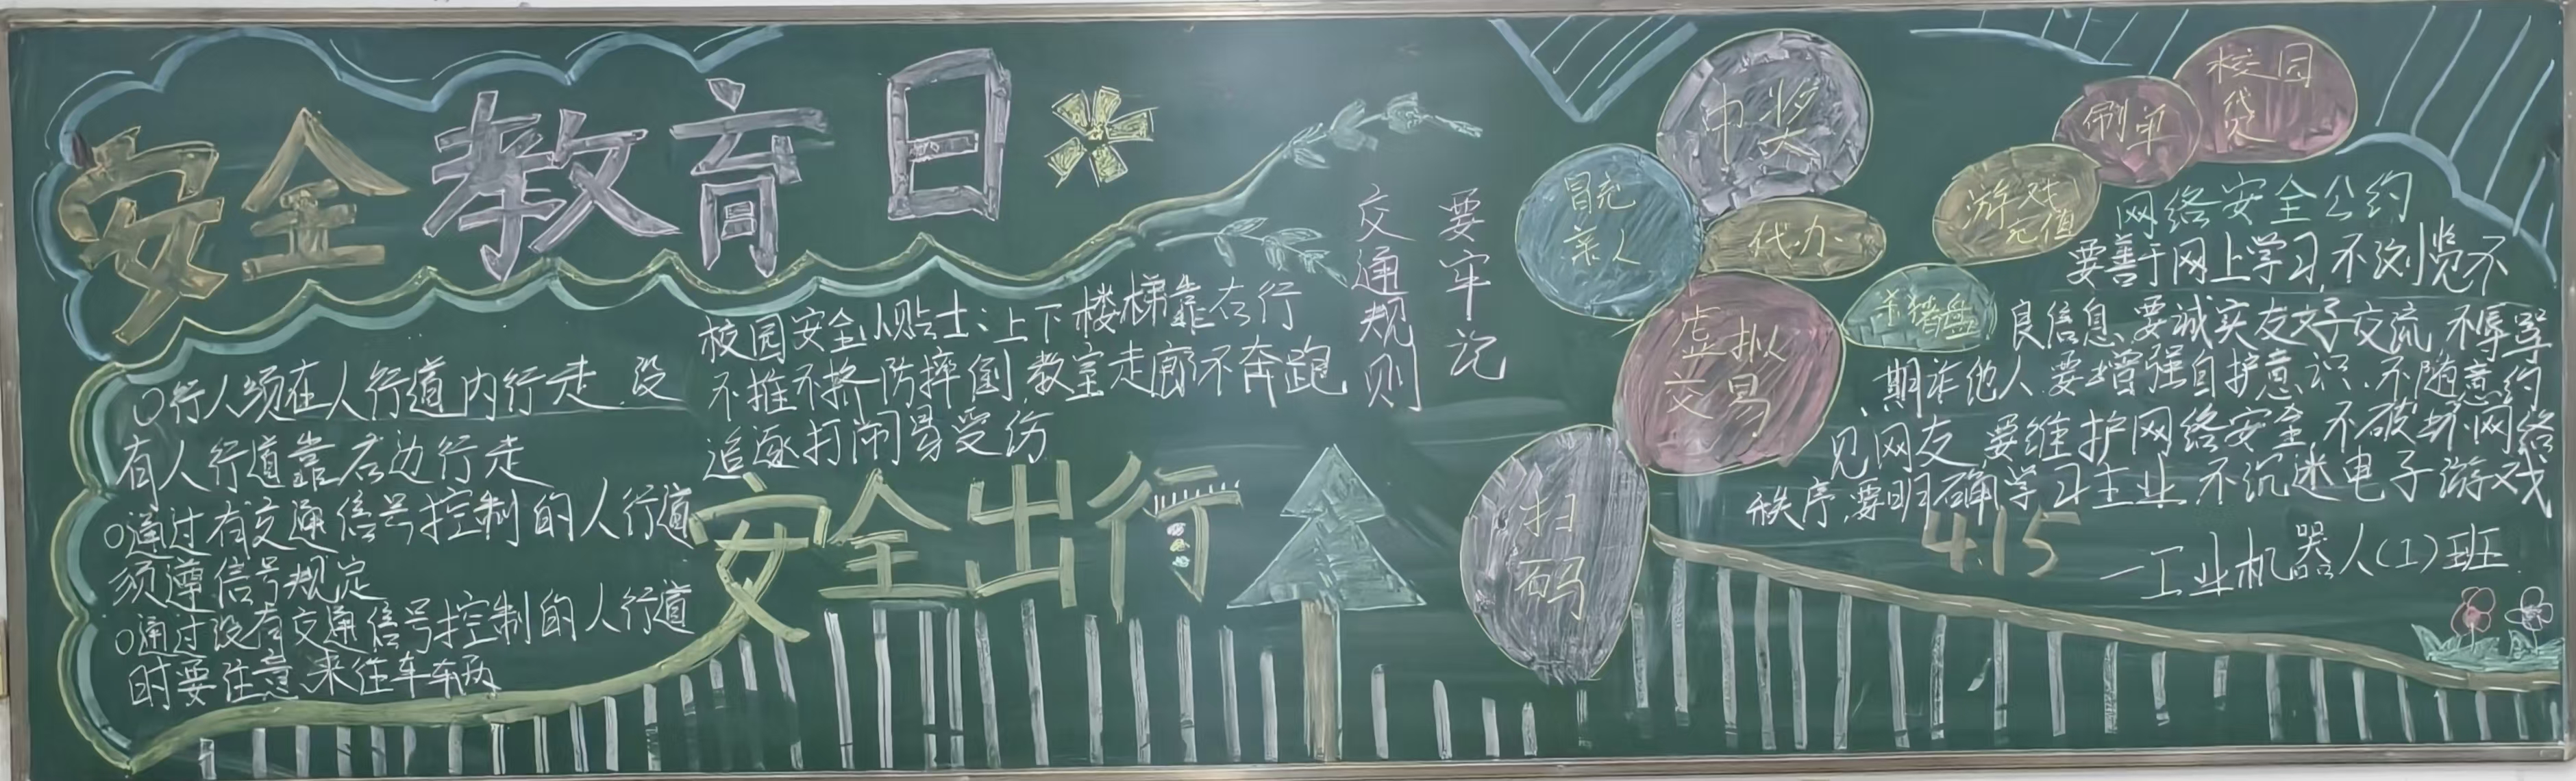 安全教育日
○行人须在人行道内行走.没
有人行道靠右边行走
○通过有交通信号控制的人行道
须遵信号规定
○通过没有交通信号控制的人行道
时要注意来往车辆
校园安全小贴士:上下楼梯靠右行
不推不挤防摔倒,教室走廊不奔跑
追逐打闹易受伤
安全出行
交通规则
要牢记
中奖
冒充
亲人
代办
虚拟
交易
扫
码
杀猪盘
游戏
充值
刷单
校园
贷
网络安全公约
要善于网上学习,不浏览不
良信息,要诚实友好交流,不辱骂
期诈他人.要增强自护意识.不随意约
见网友,要维护网络安全,不破坏网络
秩序.要明确学习主业,不沉迷电子游戏
4.15
一工业机器人(1)班